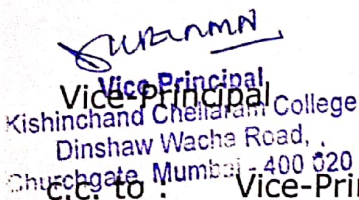 Vice-Principal
Vice-Principal
Kishinchand Chellaram College
Dinshaw Wacha Road,
Churchgate, Mumbai - 400 020
c.c. to : Vice-Prin